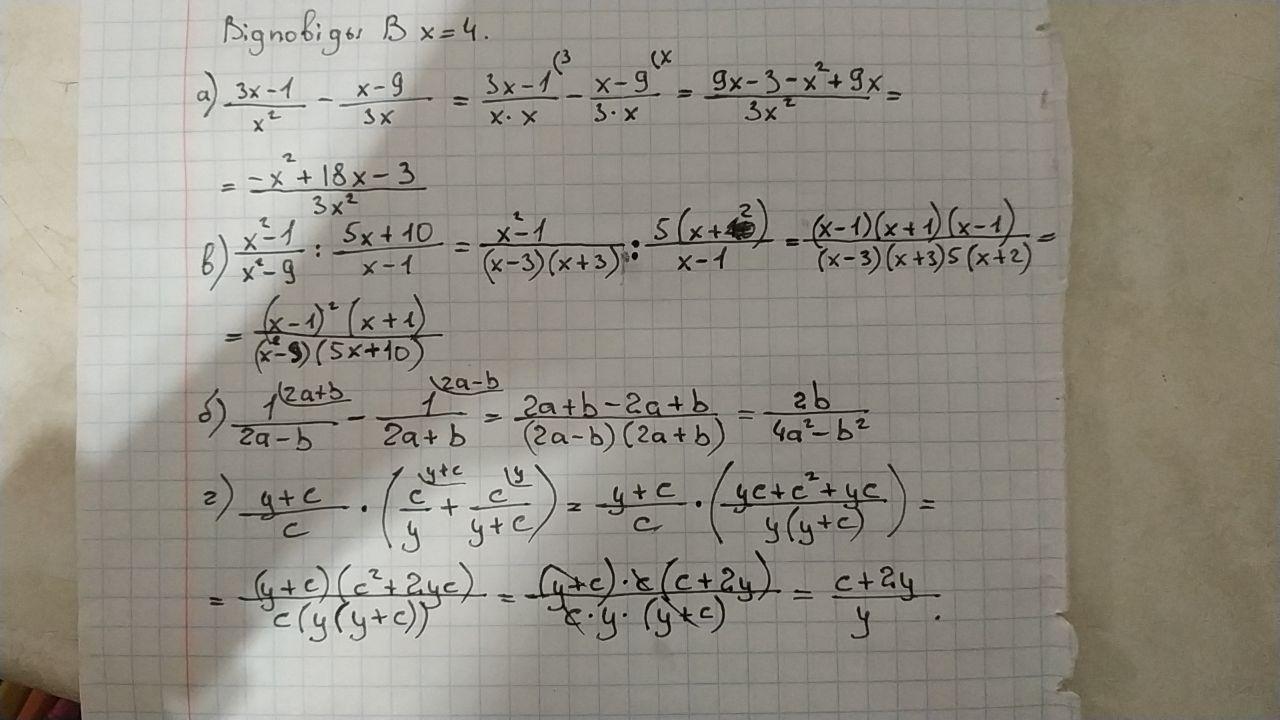 Відповідь В x=4.
а) (3x-1)/x² - (x-9)/3x = (3x-1)/(x·x) ⁽³ - (x-9)/(3·x) ⁽ˣ = (9x-3-x²+9x)/3x² =
= (-x²+18x-3)/3x²
в) (x²-1)/(x²-9) : (5x+10)/(x-1) = (x²-1)/((x-3)(x+3)) : 5(x+2)/(x-1) = (x-1)(x+1)(x-1)/((x-3)(x+3)5(x+2)) =
= (x-1)²(x+1)/((x²-9)(5x+10))
б) 1/(2a-b) ⁽2a+b - 1/(2a+b) ⁽2a-b = (2a+b-2a+b)/((2a-b)(2a+b)) = 2b/(4a²-b²)
г) (y+c)/c · (c/y ⁽y+c + c/(y+c) ⁽y) = (y+c)/c · ((yc+c²+yc)/(y(y+c))) =
= (y+c)(c²+2yc)/(c(y(y+c))) = (y+c)·c(c+2y)/(c·y·(y+c)) = (c+2y)/y .